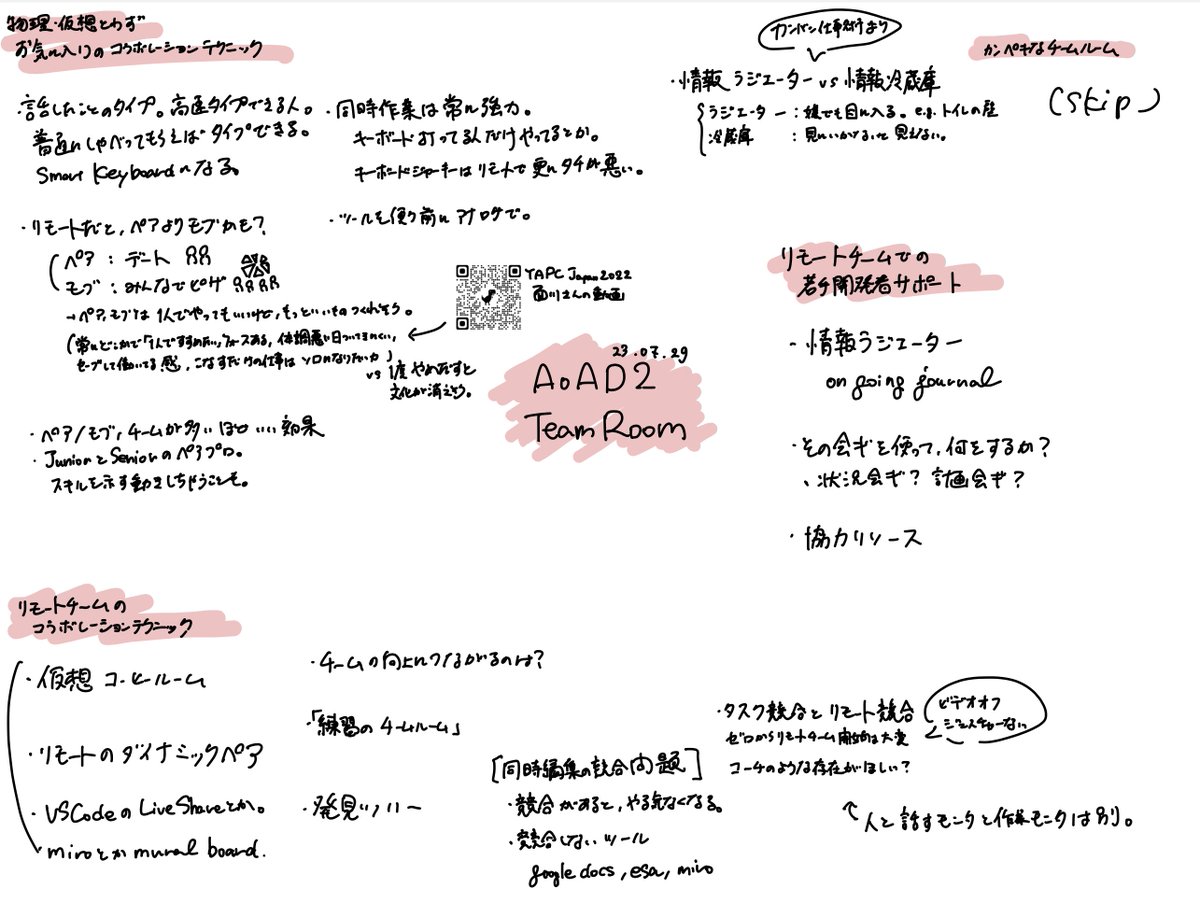 物理・仮想とわず
お気に入りのコラボレーションテクニック
・話したことのタイプ。高速タイプできる人。
普通にしゃべってもらえばタイプできる。
Smart Keyboardになる。
・リモートだと、ペアよりモブかも？
ペア：デート
モブ：みんなでピザ
→ペア、モブは1人でやってもいいけど、もっといいものつくれそう。
セーブして働いてる感、こなすだけの仕事はソロになりたいか
vs 1度やめだすと
文化が消えそう。
・ペア/モブ、チームが多いほどいい効果
・JuniorとSeniorのペアプロ。
スキルを示す動きしちゃうことも。
・同時作業は常に強力。
キーボード打ってる人だけやってるとか。
キーボードジャーキーはリモートで更にタチが悪い。
・ツールを使う前にアナログで。
YAPC Japan 2022
23.07.29
AoAD2
Team Room
カンバン仕事術より
・情報ラジエーター vs 情報冷蔵庫
ラジエーター：嫌でも目に入る。e.g.トイレの壁
冷蔵庫：見にいかないと見えない。
カンペキなチームルーム
(skip)
リモートチームでの
若手開発者サポート
・情報ラジエーター
on going journal
・その会ぎを使って、何をするか？
、状況会ぎ？計画会ぎ？
・協力リソース
リモートチームの
コラボレーションテクニック
・仮想コーヒールーム
・リモートのダイナミックペア
・VSCodeのLiveShareとか。
miroとかmural board.
・チームの向上につながるのは？
・「練習のチームルーム」
・発見ツリー
[同時編集の競合問題]
・競合があると、やる気なくなる。
・競合しないツール
google docs, esa, miro
・タスク競合とリモート競合
ゼロからリモートチーム開始は大変
コーチのような存在がほしい？
ビデオオフ
ジェスチャーない
↑人と話すモニタと作業モニタは別。